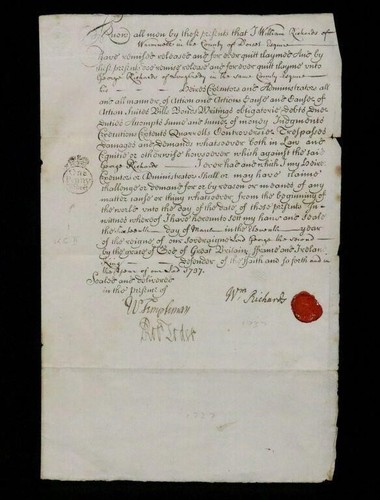 Know all men by these presents that I William Richards of
Warmwell in the County of Dorset Esquire
have remised released and for ever quitt claymed And by
these presents doe remise release and for ever quitt clayme unto
George Richards of in the same County Esquire
his Heires Executors and Administrators all
and all manner of Action and Actions Cause and Causes of
Action Suites Bills Bonds Writings obligatorie Debts Dues
Duties Accompts Summe and summes of money Judgments
Executions Extents Quarrells Controversies Trespasses
Damages and Demands whatsoever both in Law and
Equitie or otherwise howsoever which against the said
George Richards I ever had and which I my Heires
Executors or Administrators shall or may have claime
challenge or demand for or by reason or meanes of any
matter cause or thing whatsoever from the beginning of
the world unto the day of the date of these presents In
witness whereof I have hereunto sett my hand and seale
the day of in the yeare
of the reigne of our Sovereigne Lord George the second
by the grace of God of Great Brittaine ffrance and Ireland
King Defender of the ffaith and so forth and in
the yeare of our Lord 1737
Sealed and delivered
in the presence of
Wm Richards